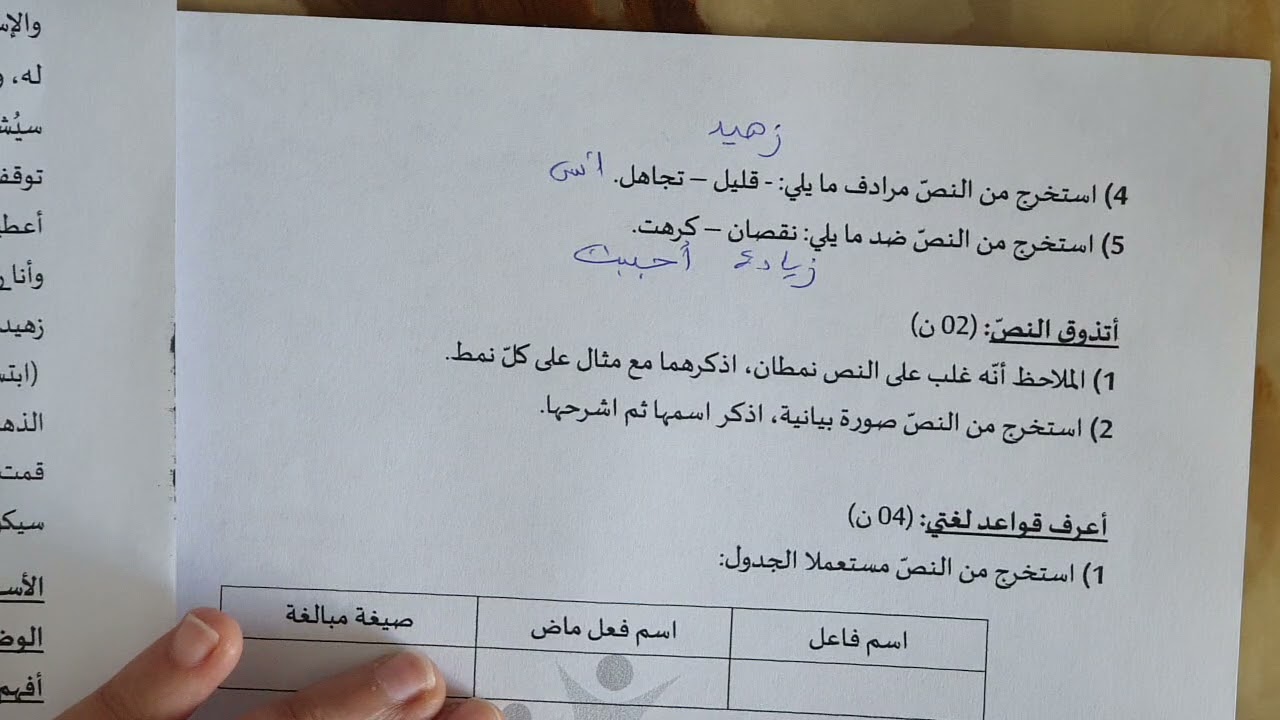 والإس
له، و
سيُش
توقف
أعطي
وأنا ر
زهيد
(ابتس
الذه
قمت
سيكو
الأس
الوض
أفهم
زهيد
4) استخرج من النصّ مرادف ما يلي: - قليل – تجاهل. انسى
5) استخرج من النصّ ضد ما يلي: نقصان – كرهت.
زيادة أحببت
أتذوق النصّ: (02 ن)
1) الملاحظ أنّه غلب على النص نمطان، اذكرهما مع مثال على كلّ نمط.
2) استخرج من النصّ صورة بيانية، اذكر اسمها ثم اشرحها.
أعرف قواعد لغتي: (04 ن)
1) استخرج من النصّ مستعملا الجدول:
اسم فاعل اسم فعل ماض صيغة مبالغة